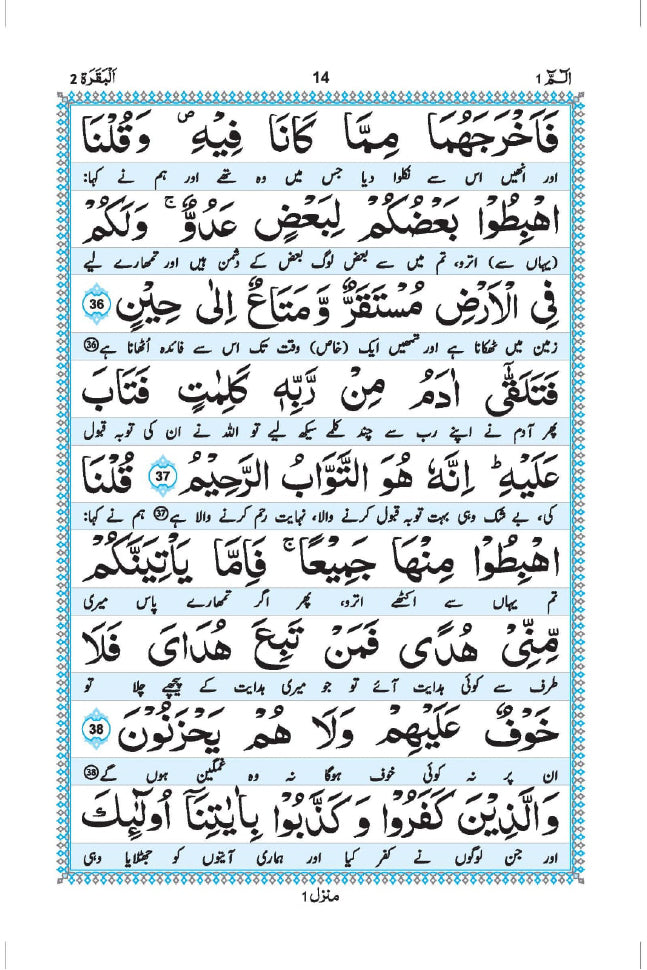 الٓمّٓ 1 14 اَلْبَقَرَة 2
فَاَخْرَجَهُمَا مِمَّا كَانَا فِيْهِ ۪ وَ قُلْنَا
اور انھیں اس سے نکلوا دیا جس میں وہ تھے اور ہم نے کہا:
اهْبِطُوْا بَعْضُكُمْ لِبَعْضٍ عَدُوٌّ ۚ وَلَكُمْ
(یہاں سے) اترو، تم میں سے بعض لوگ بعض کے دشمن ہیں اور تمھارے لیے
فِي الْاَرْضِ مُسْتَقَرٌّ وَّ مَتَاعٌ اِلٰى حِيْنٍ 36
زمین میں ٹھکانا ہے اور تمھیں ایک (خاص) وقت تک اس سے فائدہ اُٹھانا ہے 36
فَتَلَقّٰٓى اٰدَمُ مِنْ رَّبِّهٖ كَلِمٰتٍ فَتَابَ
پھر آدم نے اپنے رب سے چند کلمے سیکھ لیے تو اللہ نے ان کی توبہ قبول
عَلَيْهِ ؕ اِنَّهٗ هُوَ التَّوَّابُ الرَّحِيْمُ 37 قُلْنَا
کی، بے شک وہی بہت توبہ قبول کرنے والا، نہایت رحم کرنے والا ہے 37 ہم نے کہا:
اهْبِطُوْا مِنْهَا جَمِيْعًا ۚ فَاِمَّا يَاْتِيَنَّكُمْ
تم یہاں سے اکٹھے اترو، پھر اگر تمھارے پاس میری
مِّنِّيْ هُدًى فَمَنْ تَبِعَ هُدَايَ فَلَا
طرف سے کوئی ہدایت آئے تو جو میری ہدایت کے پیچھے چلا تو
خَوْفٌ عَلَيْهِمْ وَلَا هُمْ يَحْزَنُوْنَ 38
ان پر نہ کوئی خوف ہوگا نہ وہ غمگین ہوں گے 38
وَالَّذِيْنَ كَفَرُوْا وَ كَذَّبُوْا بِاٰيٰتِنَاۤ اُولٰٓئِكَ
اور جن لوگوں نے کفر کیا اور ہماری آیتوں کو جھٹلایا وہی
منزل 1